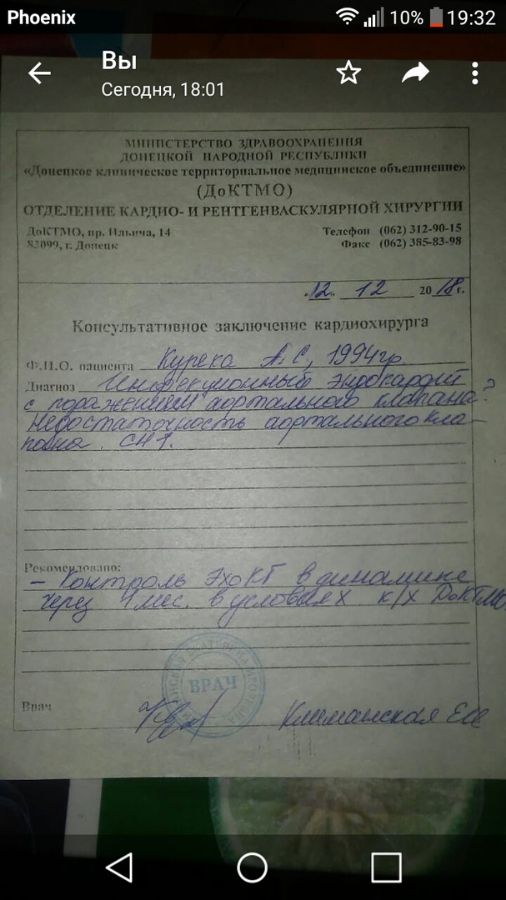 Phoenix 10% 19:32
Вы
Сегодня, 18:01
МИНИСТЕРСТВО ЗДРАВООХРАНЕНИЯ
ДОНЕЦКОЙ НАРОДНОЙ РЕСПУБЛИКИ
«Донецкое клиническое территориальное медицинское объединение»
(ДоКТМО)
ОТДЕЛЕНИЕ КАРДИО- И РЕНТГЕНВАСКУЛЯРНОЙ ХИРУРГИИ
ДоКТМО, пр. Ильича, 14 Телефон (062) 312-90-15
83099, г. Донецк Факс (062) 385-83-98
12. 12 2018г.
Консультативное заключение кардиохирурга
Ф.И.О. пациента А.С., 1994гр
Диагноз Инфекционный эндокардит
с поражением аортального клапана?
Недостаточность аортального кла-
пана. СН 1.
Рекомендовано:
- Контроль ЭхоКГ в динамике
через 1 мес. в условиях к/х ДоКТМО
ВРАЧ
Врач